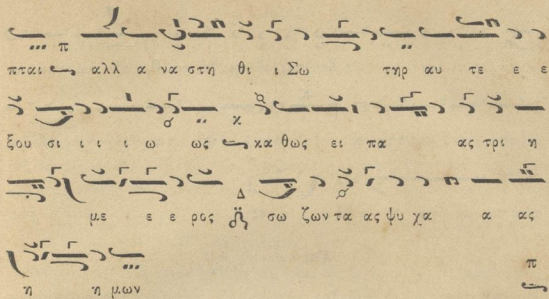 π
πται αλλ α να στη θι ι Σω τηρ αυ τε ε ε
κ
ξου σι ι ι ι ω ως κα θως ει πα ας τρι η
Δ
με ε ε ρος σω ζων τα ας ψυ χα α ας
π
η η μων